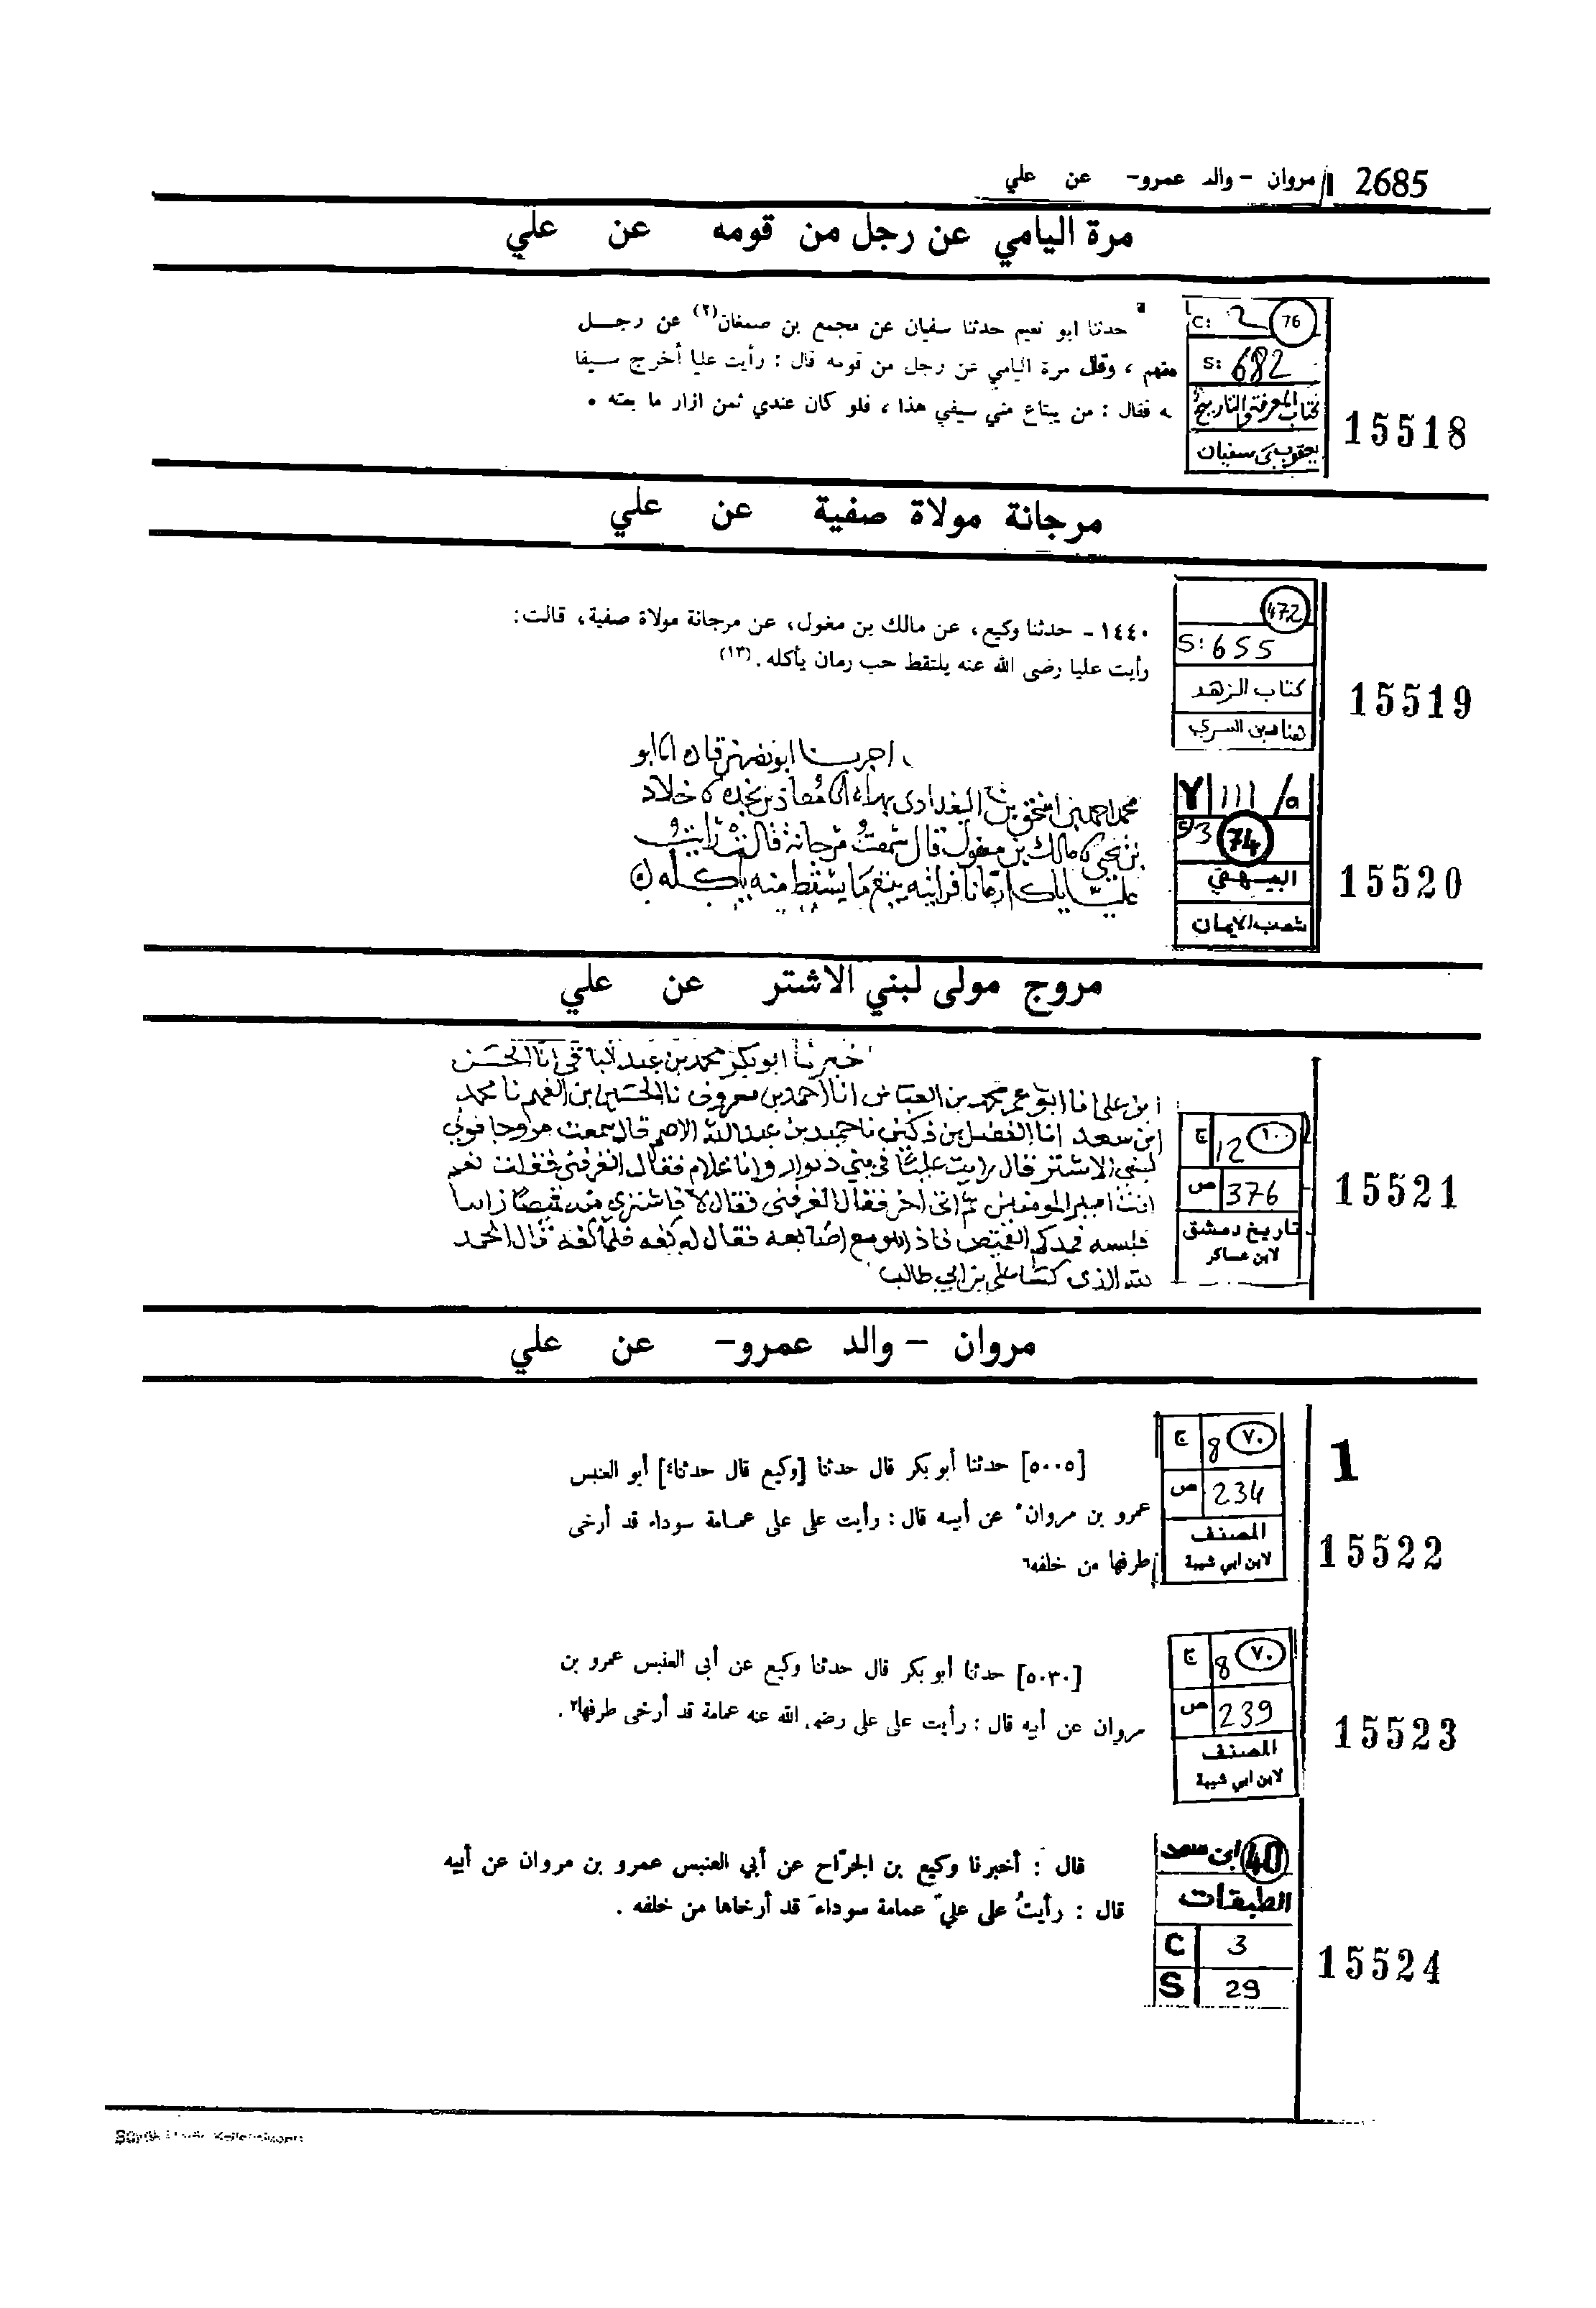 2685 مروان - والد عمرو- عن علي
مرة اليامي عن رجل من قومه عن علي
C: 2 76
S: 682
كتاب المعرفة والتاريخ
يعقوب بن سفيان
15518
حدثنا ابو نعيم حدثنا سفيان عن مجمع بن صمغان(٢) عن رجل
منهم ، وقال مرة اليامي عن رجل من قومه قال : رأيت عليا أخرج سيفا
ـه فقال : من يبتاع مني سيفي هذا ، فلو كان عندي ثمن ازار ما بعته .
مرجانة مولاة صفية عن علي
472
S: 655
كتاب الزهد
هناد بن السري
15519
١٤٤٠ - حدثنا وكيع، عن مالك بن مغول، عن مرجانة مولاة صفية، قالت:
رأيت عليا رضى الله عنه يلتقط حب رمان يأكله .(١٣)
Y 111/a
74
البيهقي
شعب الايمان
15520
محمد احمد بن اسحق بن البغدادى بهراه معاذ بن نجده خلاد
بن يحيى مالك بن مغول قال سمعت مرجانة قالت رايت
عليا ياكل رمانا فرايته يتبع ما يسقط منه ياكله
مروج مولى لبني الاشتر عن علي
ج 12 ١٠٠
ص 376
تاريخ دمشق
لابن عساكر
15521
خبرنا ابو بكر محمد بن عبد الباقي انا الحسن
بن على انا ابو عمر محمد بن العباس انا احمد بن معروف نا الحسين بن الفهم نا محمد
ابن سعد انا الفضل بن دكين نا حميد بن عبد الله الاصم قال سمعت مروجا مولى
لبنى الاشتر قال رايت عليا في بني ديوار وانا غلام فقال اتعرفنى فقلت نعم
انت امير المومنين ثم اتى اخر فقال اتعرفنى فقال لا فاشترى منه قميصا زابيا
فلبسه فمد كم القميص فاذا هو مع اصابعه فقال له كفه فلما كفه قال الحمد
لله الذى كسا على بن ابي طالب
مروان - والد عمرو- عن علي
1
ج 8 ٧٠
ص 234
المصنف
لابن ابي شيبة
15522
[٥٠٠٥] حدثنا أبو بكر قال حدثنا [وكيع قال حدثنا٤] أبو العنبس
عمرو بن مروان° عن أبيه قال : رأيت على على عمامة سوداء قد أرخى
طرفها من خلفه٦
ج 8 ٧٠
ص 239
المصنف
لابن ابي شيبة
15523
[٥٠٣٠] حدثنا أبو بكر قال حدثنا وكيع عن أبى العنبس عمرو بن
مروان عن أبيه قال : رأيت على على رضى الله عنه عمامة قد أرخى طرفها٢ .
ابن سعد 40
الطبقات
C 3
S 29
15524
قال : أخبرنا وكيع بن الجرّاح عن أبي العنبس عمرو بن مروان عن أبيه
قال : رأيتُ على عليّ عمامة سوداء قد أرخاها من خلفه .